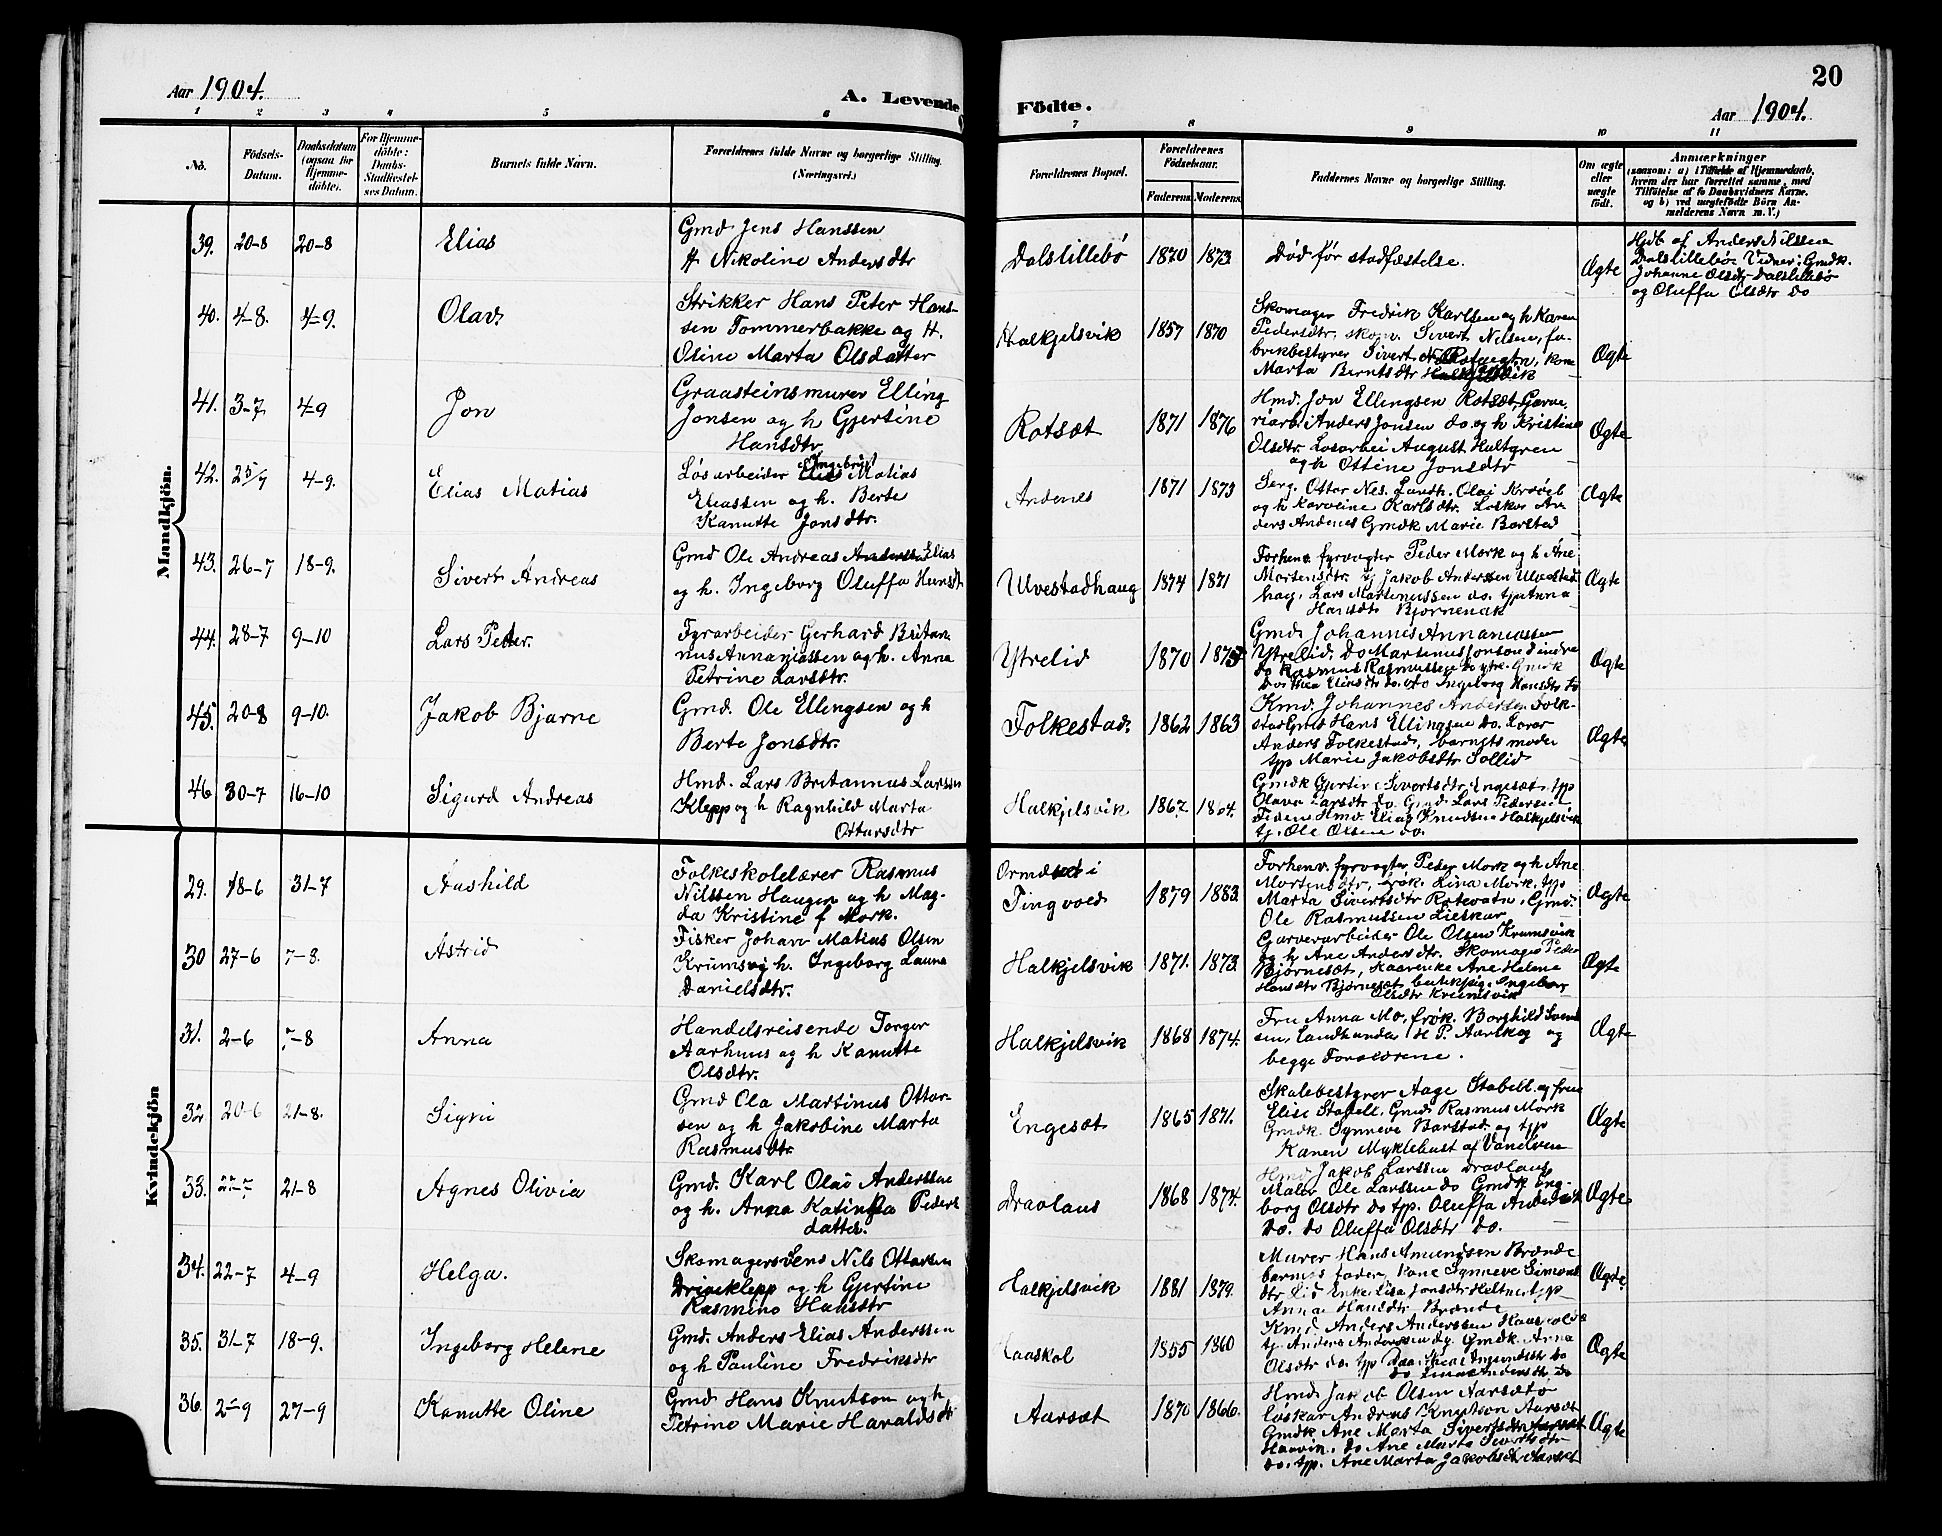 Aar 1904.
A. Levende
Födte.
20
Aar 1904.
1 2 3 4 5 6 7 8 9 10 11
No.
Födsels-
Datum.
Daabsdatum
(ogsaa for
Hjemme-
döbte).
For Hjemme-
döbte:
Daabs-
Stadfæstel-
ses Datum.
Barnets fulde Navn.
Forældrenes fulde Navne og borgerlige Stilling.
(Næringsvei.)
Forældrenes Bopæl.
Forældrenes
Födselsaar.
Faderens. Moderens.
Faddernes Navne og borgerlige Stilling.
Om ægte
eller
uægte
födt.
Anmærkninger
(saasom: a) i Tilfælde af Hjemmedaab,
hvem der har forrettet samme, med
Tilföielse af to Daabsvidners Navne,
og b) ved uægtefödte Börn An-
melderens Navn m. V.)
Mandkjön.
39. 20-8 20-8 Elias
Gmd Jens Hanssen
H Nikoline Andersdtr
Dalslillebø 1870 1873 Død før stadfæstelse. Ægte
Hjdb af Anders Nilssen
Dalslillebø Vidner: Gmdk.
Johanne Olsdtr Dalslillebø
og Oluffa Olsdtr do
40. 4-8. 4-9. Olav.
Strikker Hans Peter Hans-
sen Tømmerbakke og H.
Oline Marta Olsdatter
Halkjelsvik 1857 1870
Skomager Fredrik Karlsen og h Karen
Pedersdtr, skom. Sivert Nilsen, fa-
brikbestyrer Sivert kone
Marta Berntsdtr Halkjelsvik
Ægte
41. 3-7 4-9 Jon
Graasteinsmurer Elling
Jonsen og h Gjertine
Hansdtr
Rotsæt 1871 1876
Hmd. Jon Ellingsen Rotsæt, Garve-
riarb. Anders Jonsen do og h Kristine
Olsdtr Løsarbei August Hultgren
og h Ottine Jonsdtr
Ægte
42. 25/7 4-9. Elias Matias
Løsarbeider Ingebrigt Matias
Eliassen og h. Berte
Kanutte Jonsdtr.
Andenes 1871 1873
Serg. Ottar Nes. Landh. Olai
og h Karoline Karlsdtr. Løskar An-
ders Andenes Gmdk Marie Barstad
Ægte
43. 26-7 18-9. Sivert Andreas
Gmd Ole Andreas Elias
og h. Ingeborg Oluffa Hansdt
Ulvestadhaug 1874 1871
Forhenv. fyrvogter Peder Mork og h Ane
Mortensdtr. Jakob Anderssen Ulvestad-
haug, Lars Martinussen do. tjp Anna
Hansdtr Bjørnenak
Ægte
44. 28-7 9-10 Lars Peder.
Fyrarbeider Gerhard Britan-
nus Annaniassen og h. Anna
Petrine Larsdtr.
Ytrelid 1870 1875
Gmd. Johannes Annaniassen
Ytrelid, do Martinus Jonson Indre
do Rasmus Rasmussen do ytre. Gmdk
Dorthea Eliasdtr do. do Ingeborg Hansdtr do
Ægte
45. 20-8 9-10. Jakob Bjarne
Gmd. Ole Ellingsen og h
Berte Jonsdtr.
Folkestad. 1862 1863
Kmd. Johannes Andersen Folk-
stad Gmd Hans Ellingsen do. Lærer
Anders Folkestad, barnets moder
tjp Marie Jakobsdtr Sollid
Ægte
46 30-7 16-10 Sigurd Andreas
Hmd. Lars Britannus Larssen
Klepp og h Ragnhild Marta
Ottarsdtr
Halkjelsvik 1867. 1864.
Gmdk Gjertine Sivertsdtr Engesæt, tjp
Olava Larsdtr do. Gmd Lars Pedersen
Hmd. Elias Knudsen Halkjelsvik
tj. Ole Olsen do.
Kvindekjön
29. 18-6 31-7 Aashild
Folkeskolelærer Rasmus
Nilssen Haugen og h Mag-
da Kristine f Mork.
i
Tingvold 1879 1883.
Forhenv. fyrvogter Peder Mork og h Ane
Mortensdtr, frøk. Lina Mork, tjp
Marta Sivertsdtr Rotevatn, Gmd.
Ole Rasmussen Lieskar
Ægte
30 27-6 7-8. Astrid
Fisker Johan Matias Olsen
Krumsvig h. Ingeborg Launa
Danielsdtr.
Halkjelsvik 1871. 1873.
Garverarbeider Ole Olsen Krumsvik
og h Ane Andersdtr. Skomager Peder
Bjørnesæt, Ane Helene
Hansdtr Bjørnesæt butikpig. Ingeborg
Olsdtr Krumsvik
Ægte
31. 2-6 7-8 Anna
Handelsreisende Torger
Aarhuus og h Kanutte
Olsdtr.
Halkjelsvik 1868 1874.
Fru Anna Mo, frøk. Borghild Svend-
sen, Landhandler H P. Aarskog og
begge Forældrene.
Ægte
32 20-6 21-8. Signi
Gmd Ola Martinus Ottar-
sen og h Jakobine Marta
Rasmusdtr.
Engesæt 1865 1871.
Skolebestyrer Aage Stabell og frue
Elise Stabell. Gmd. Rasmus Mork
Gmdk. Synneve Barstad og tjp
Karen Myklebust af Vanelven
Ægte
33. 22-7 21-8 Agnes Olivia
Gmd. Karl Olai Anderssen
og h. Anna Katinka Peders
datter.
Dravlaus 1868 1874.
Hmd Jakob Larssen Dravlaus
Maler Ole Larssen do Gmdk Ing-
borg Olsdtr do tjp. Oluffa Andersdtr
do. do Oluffa Olsdtr do.
Ægte
34. 22-7 4-9 Helga.
Skomagersvend Nils Ottarsen
Driveklepp og h Gjertine
Rasmine Hansdtr
Halkjelsvik 1881 1879.
Murer Hans Amundsen Brænde
barnets fader, Kone Synneve Simons
dtr Lid Enke Lisa Jonsdtr Heltne, tjp
Anna Hansdtr Brænde
Ægte
35. 31-7 18-9. Ingeborg Helene
Gmd. Anders Elias Anderssen
og h Pauline Fredriksdtr
Laaskol 1855 1860
Kmd. Anders Anderssen
tj. Anders Anderssen do. Gmdk. Anna
Olsdtr do. tjp Amundsdtr do
do Andersdtr do
Ægte
36. 2-9 27-9 Kanutte Oline
Gmd Hans Knutson og h
Petrine Marie Haraldsdtr
Aarsæt 1870 1866.
Hmd Jakob Olsen Aarsæt
løskar Andreas Knutson Aarsæt
Gmdk Ane Marta Sivertsdtr
do Ane Marta Sivertsdtr
do. tjp. Ane Marta Jakobsdtr Aarsæt
Ægte